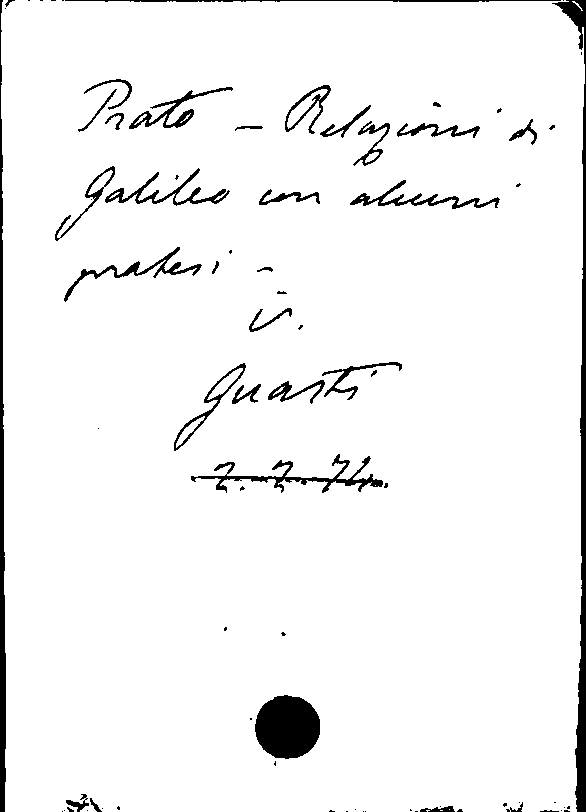 Prato – Relazioni di
Galileo con alcuni
pratesi –
v.
Guasti